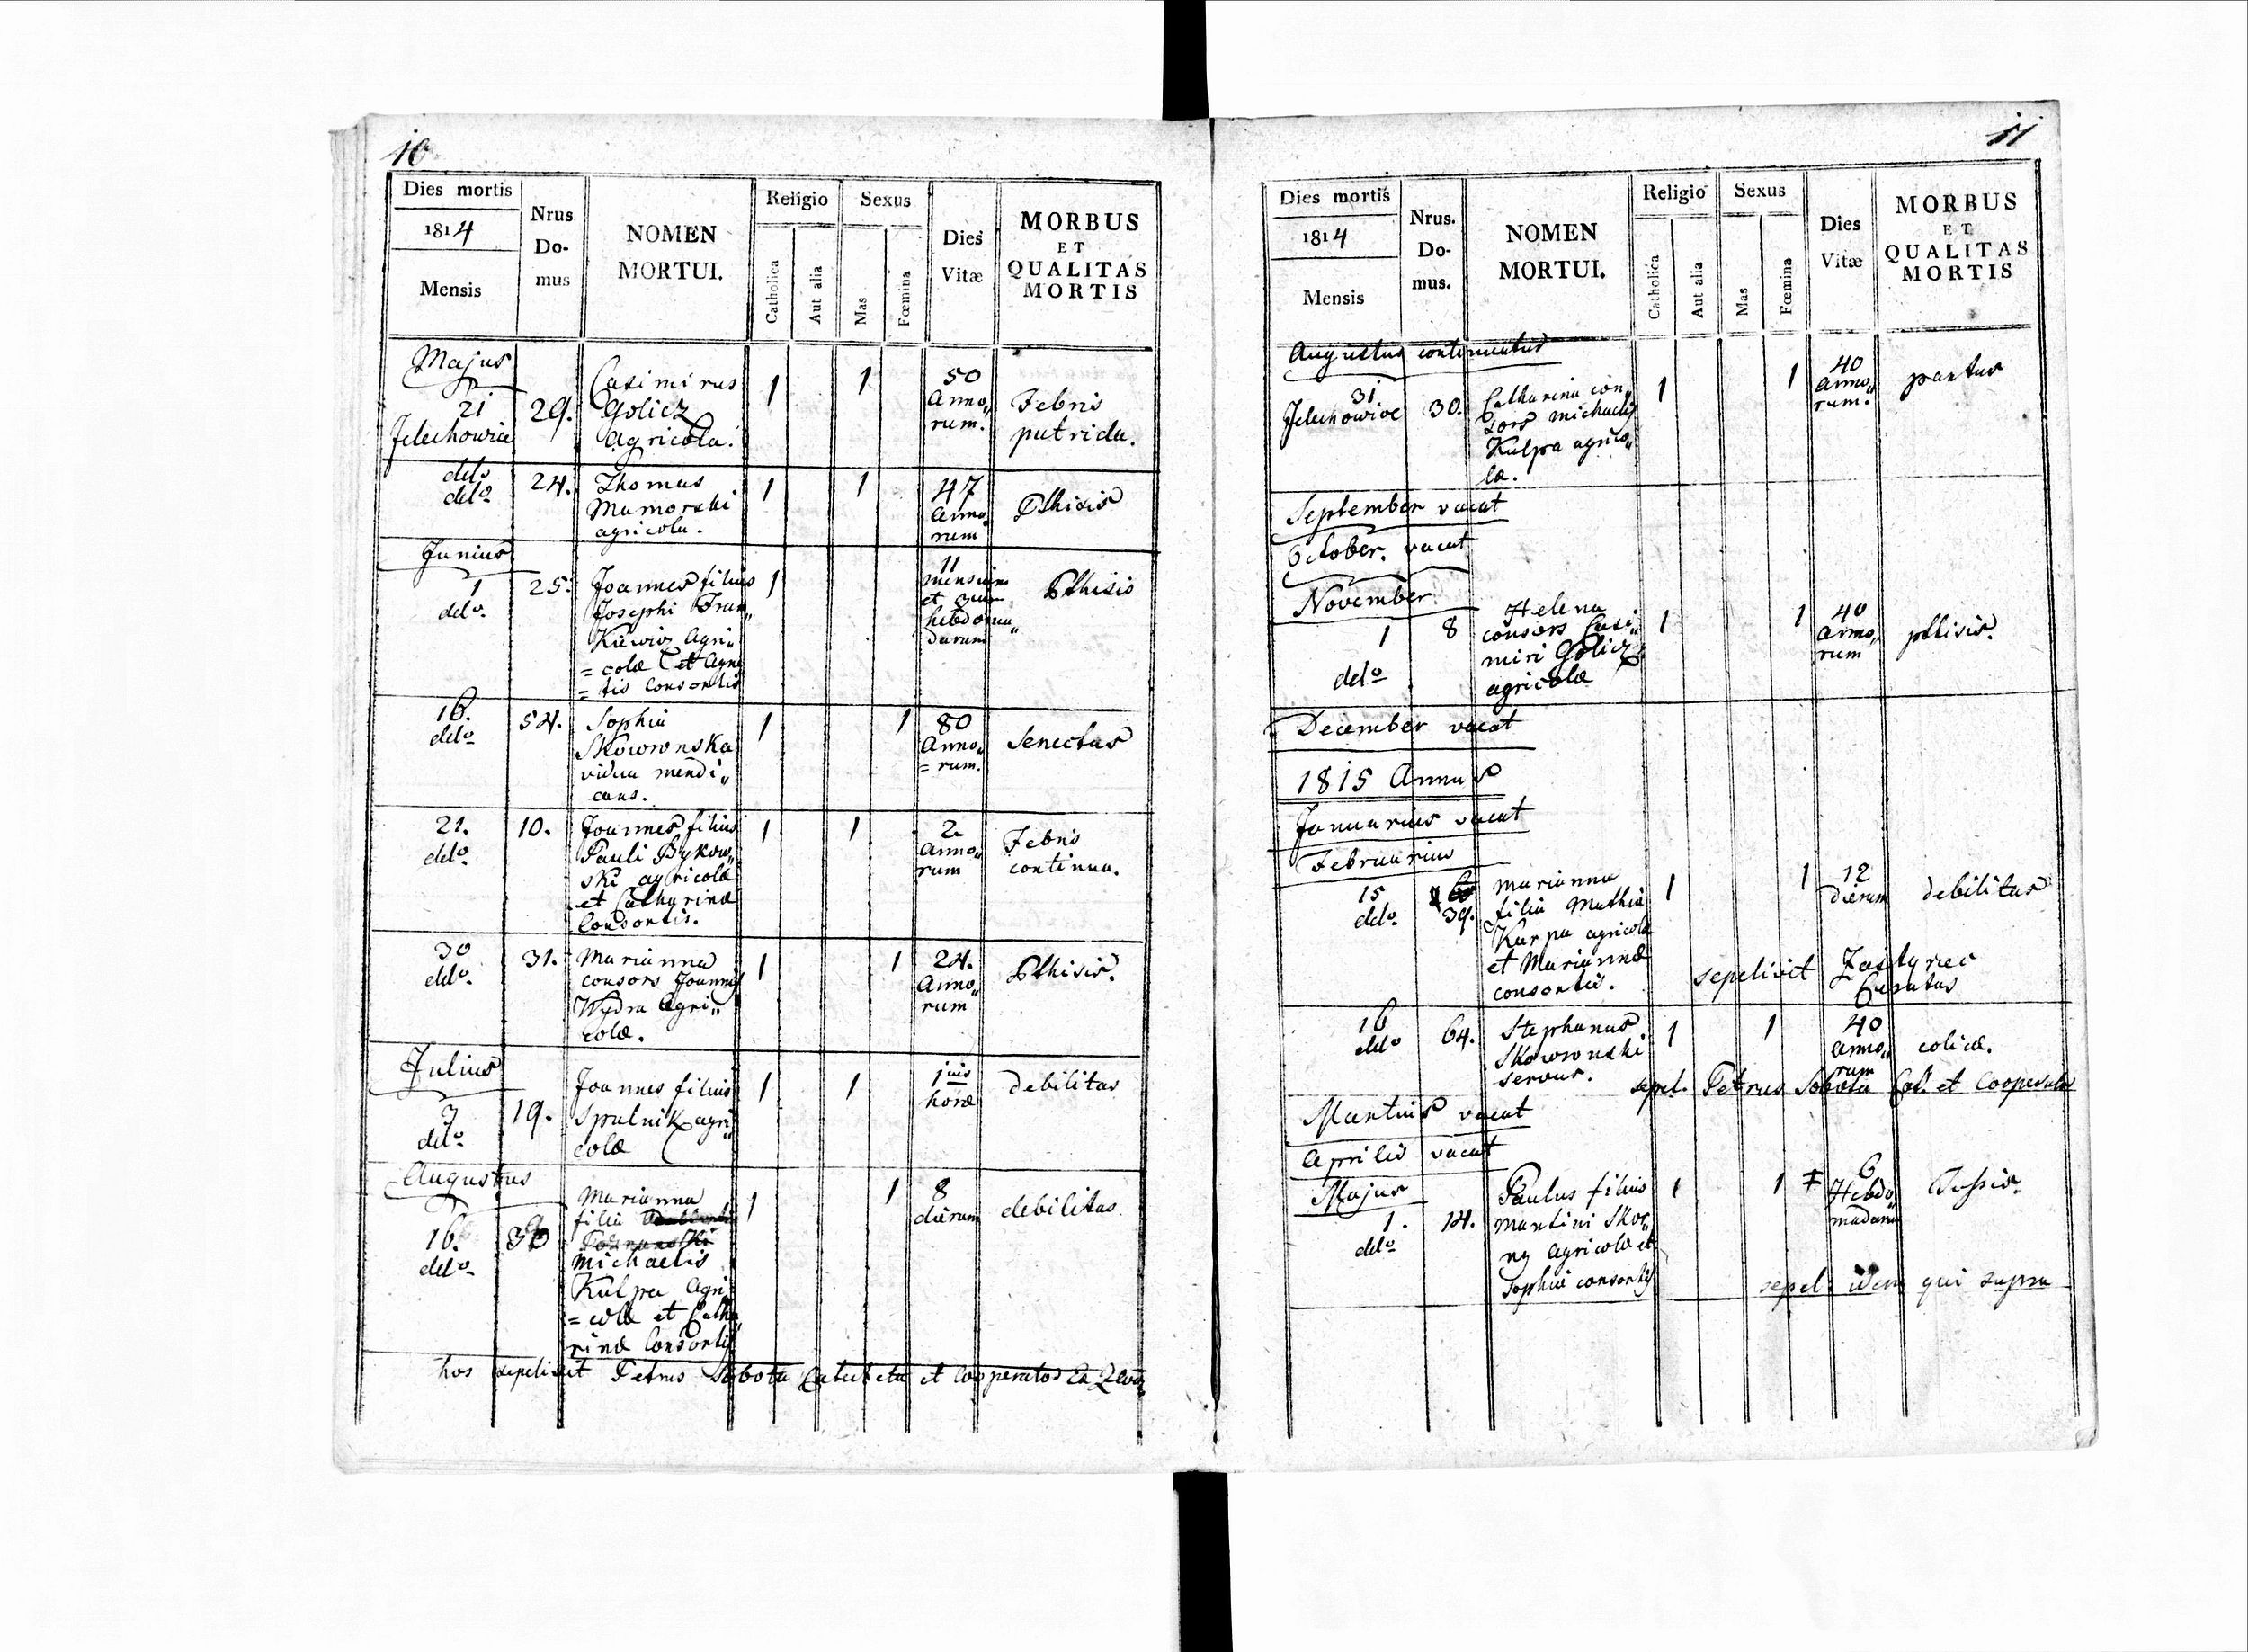 10
Dies mortis
1814
Mensis
Nrus
Do-
mus
NOMEN
MORTUI.
Religio
Catholica
Aut alia
Sexus
Mas
Fœmina
Dies
Vitæ
MORBUS
ET
QUALITAS
MORTIS
Majus
21
Jelechowice
29.
Casimirus
Golicz
agricola.
1
1
50
Anno„
rum.
Febris
putrida.
delo
delo
24.
Thomas
Mamorski
agricola.
1
1
47
Anno
rum
Pthisis
Junius
1
delo.
25.
Joannes filius
Josephi Fran„
Kiewicz Agri„
=colæ et Agne
=tis Consortis
1
11
mensium
et
hebdoma„
darum
Pthisis
16.
delo
54.
Sophia
Skowronska
vidua mendi„
cans.
1
1
80
Anno„
=rum.
Senectus
21.
delo.
10.
Joannes filius
Pauli Bykow„
ski agricolæ
et Catharinæ
Consortis.
1
1
2
anno„
rum
Febris
continua.
30
delo.
31.
Marianna
consors Joannis
Wydra Agri„
colæ.
1
1
24.
Anno„
rum
Pthisis.
Julius
7
delo.
19.
Joannes filius
Spulnik agri„
colæ
1
1
1nius
horæ
debilitas
Augustus
16.
delo.
30
Marianna
filia
Michaelis
Kulpa Agri
=colæ et Catha„
rinæ Consortis
1
1
8
dierum
debilitas.
hos sepelivit Petrus Sobota Catecheta et Cooperator
11
Dies mortis
1814
Mensis
Nrus.
Do-
mus.
NOMEN
MORTUI.
Religio
Catholica
Aut alia
Sexus
Mas
Fœmina
Dies
Vitæ
MORBUS
ET
QUALITAS
MORTIS
Augustus continuatus
31
Jelechowice
30.
Catharina con„
sors Michaelis
Kulpa agrico„
læ.
1
1
40
Anno„
rum.
partus
September vacat
October. vacat
November
1
delo
8
Helena
consors Casi„
miri Golicz
agricolæ
1
1
40
Anno„
rum
pthisis.
December vacat
1815 Annus
Januarius vacat
Februarius
15
delo.
39.
Marianna
filia Mathiæ
Karpa agricolæ
et Mariannæ
consortis.
1
1
12
dierum
debilitas
sepelivit Zastyrec
Curatus
16
delo
64.
Stephanus
Skowronski
servus.
1
1
40
anno„
rum
colica.
sepel. Petrus Sobota Cat. et Cooperator
Martius vacat
Aprilis vacat
Majus
1.
delo
14.
Paulus filius
Martini Skor„
ny Agricolæ et
Sophiæ consortis
1
1
6
Hebdo„
madarum
Tussis.
sepel. idem qui supra